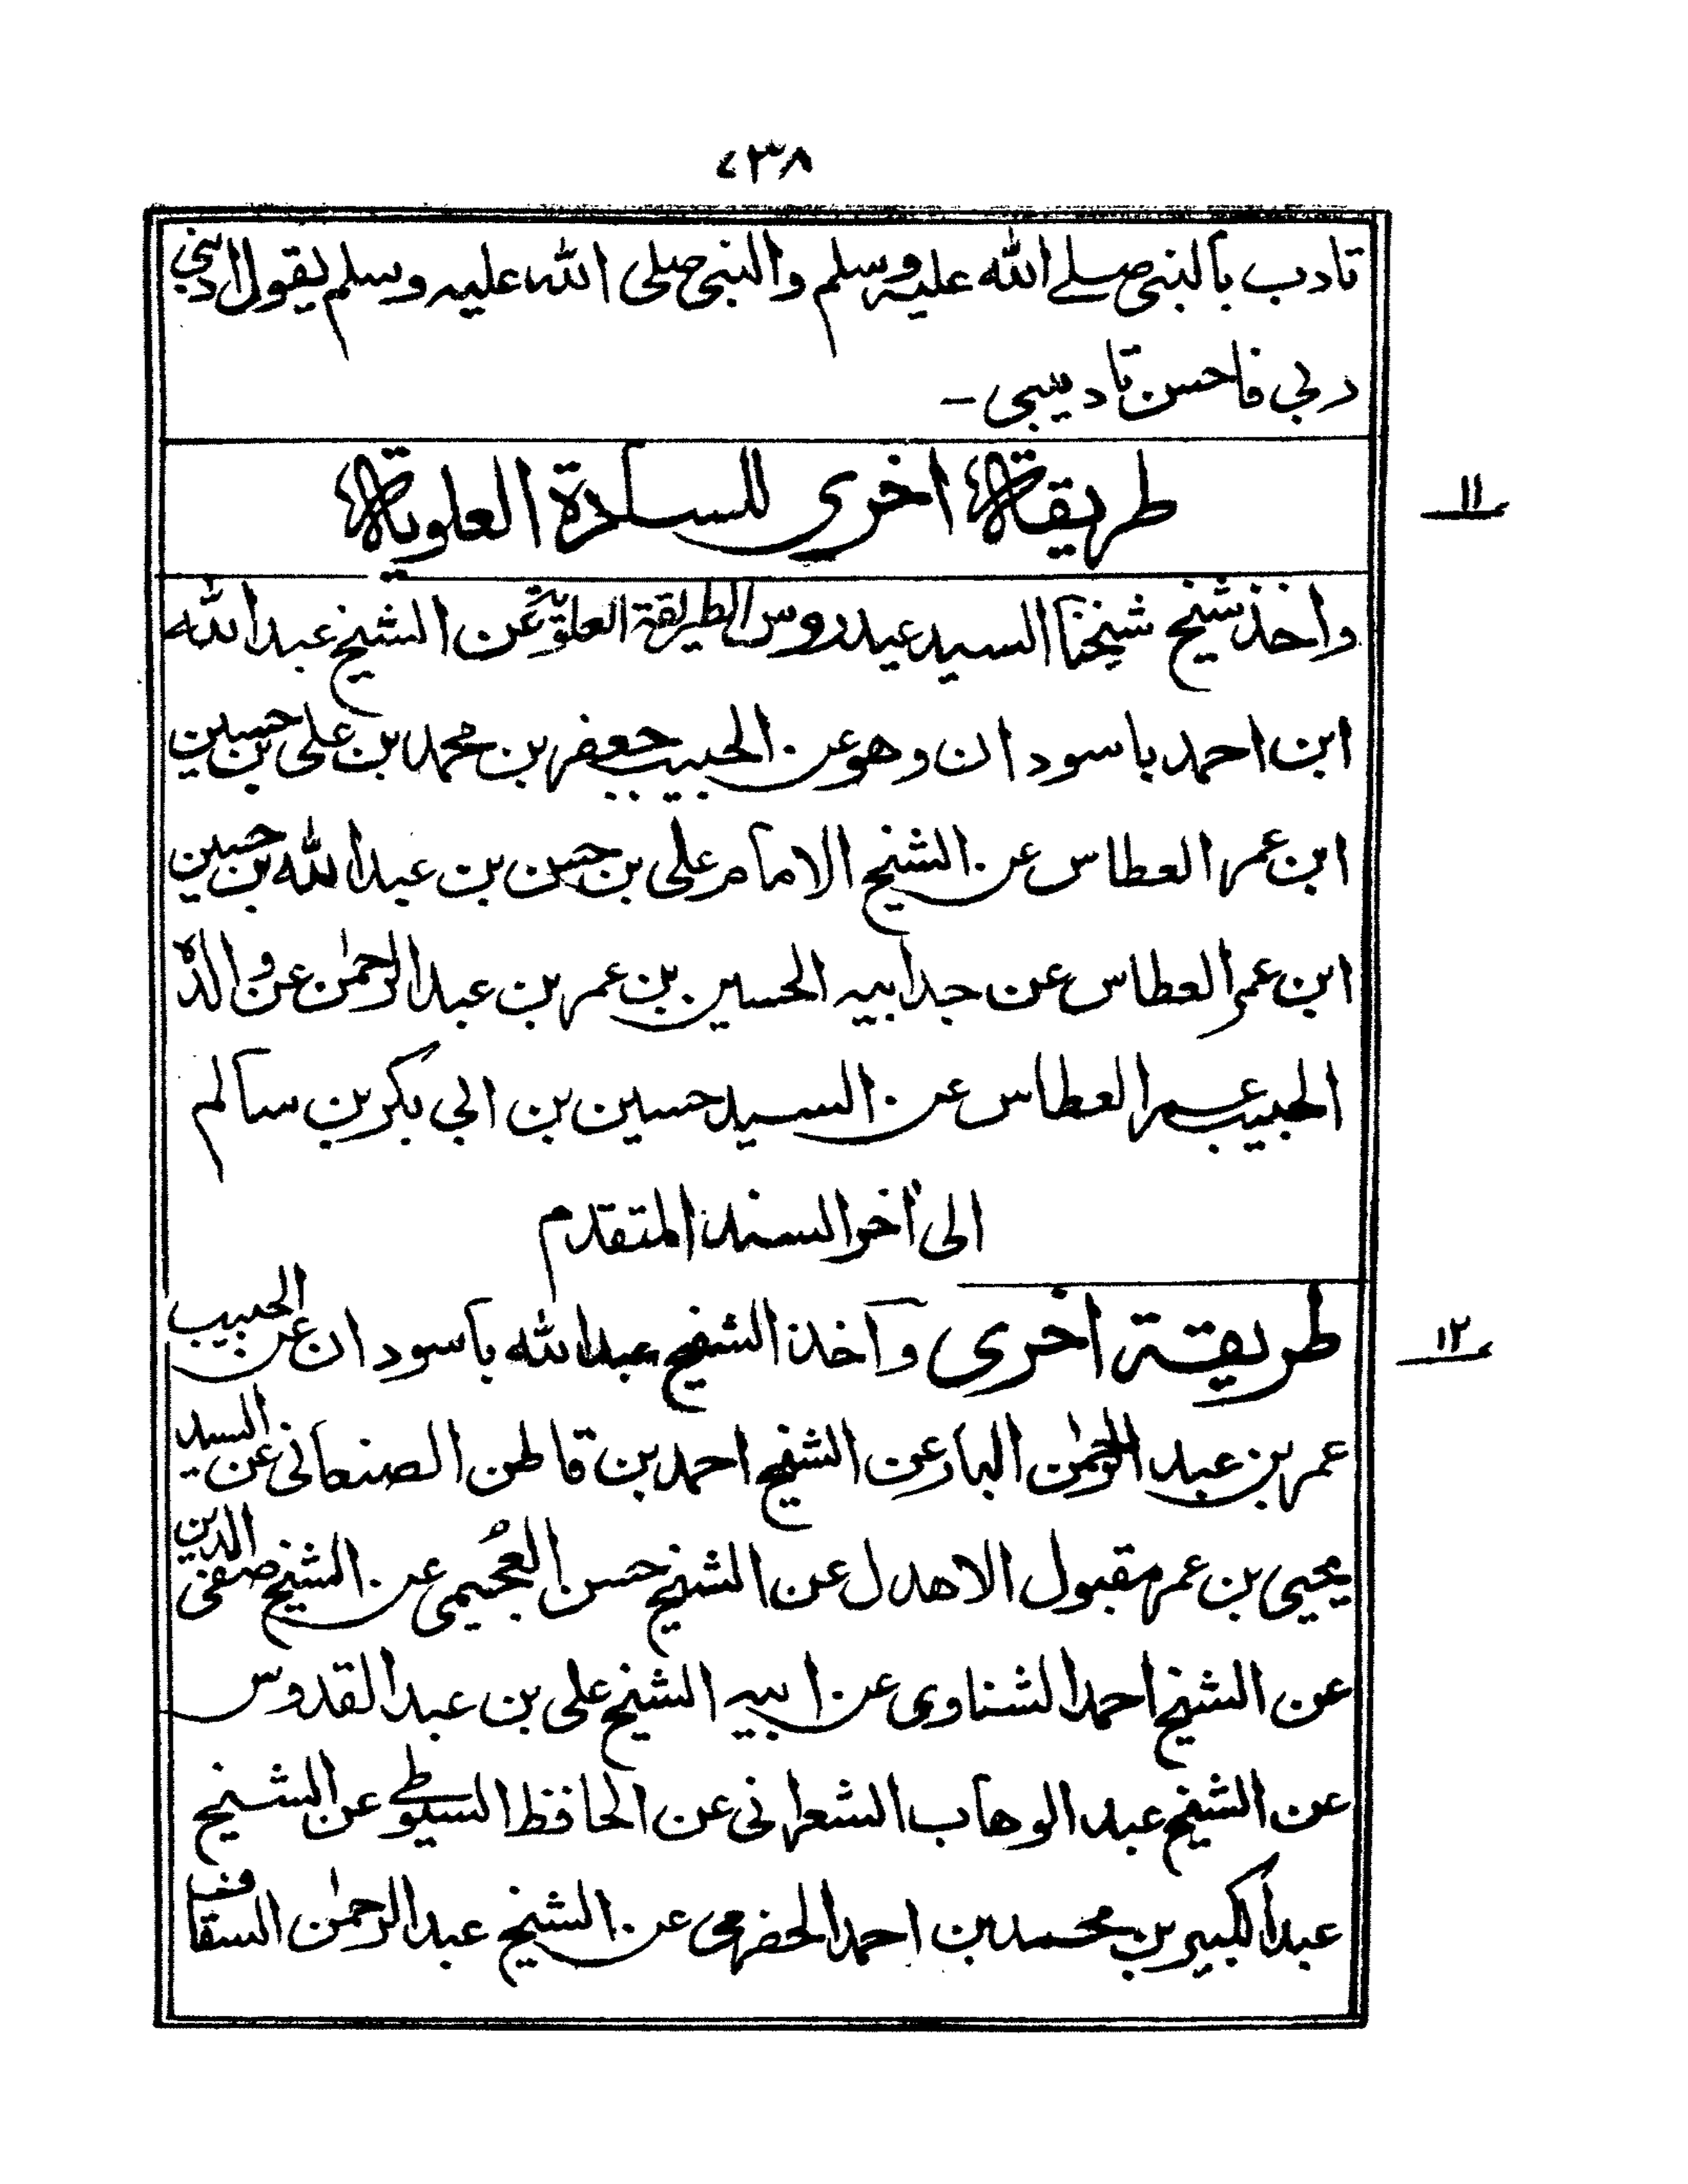 ٢٣٨
تادب بالنبي صلے الله عليه وسلم والنبي صلى الله عليه وسلم يقول ادبني
ربي فاحسن تاديبي -
طريقة اخرى للسادة العلوية
١١
واخذ شيخ شيخنا السيد عيدروس الطريقة العلوية عن الشيخ عبد الله
ابن احمد باسودان وهو عن الحبيب جعفر بن محمد بن على بن حسين
ابن عمر العطاس عن الشيخ الامام على بن حسن بن عبد الله بن حسين
ابن عمر العطاس عن جد ابيه الحسين بن عمر بن عبد الرحمٰن عن والده
الحبيب عمر العطاس عن السيد حسين بن ابي بكر بن سالم
الى اٰخر السند المتقدم
طريقة اخرى واخذ الشيخ عبد الله باسودان عن الحبيب
١٢
عمر بن عبد الرحمٰن البار عن الشيخ احمد بن قاطن الصنعانى عن السيد
يحيى بن عمر مقبول الاهدل عن الشيخ حسن العُجيمى عن الشيخ صفى الدين
عن الشيخ احمد الشناوى عن ابيه الشيخ على بن عبد القدوس
عن الشيخ عبد الوهاب الشعرانى عن الحافظ السيوطے عن الشيخ
عبد الكبير بن محمد بن احمد الحضرمى عن الشيخ عبد الرحمٰن السقاف